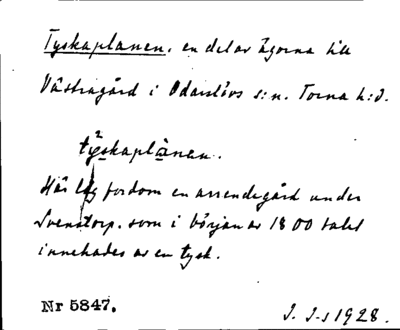 Tyskaplanen, en del av ägorna till
Västragård i Odarslövs s:n. Torna h:d.
tyskaplànen.
Här låg fordom en arrendegård under
Svenstorp, som i början av 1800 talet
innehades av en tysk.
Nr 5847.
J. I-s 1928.